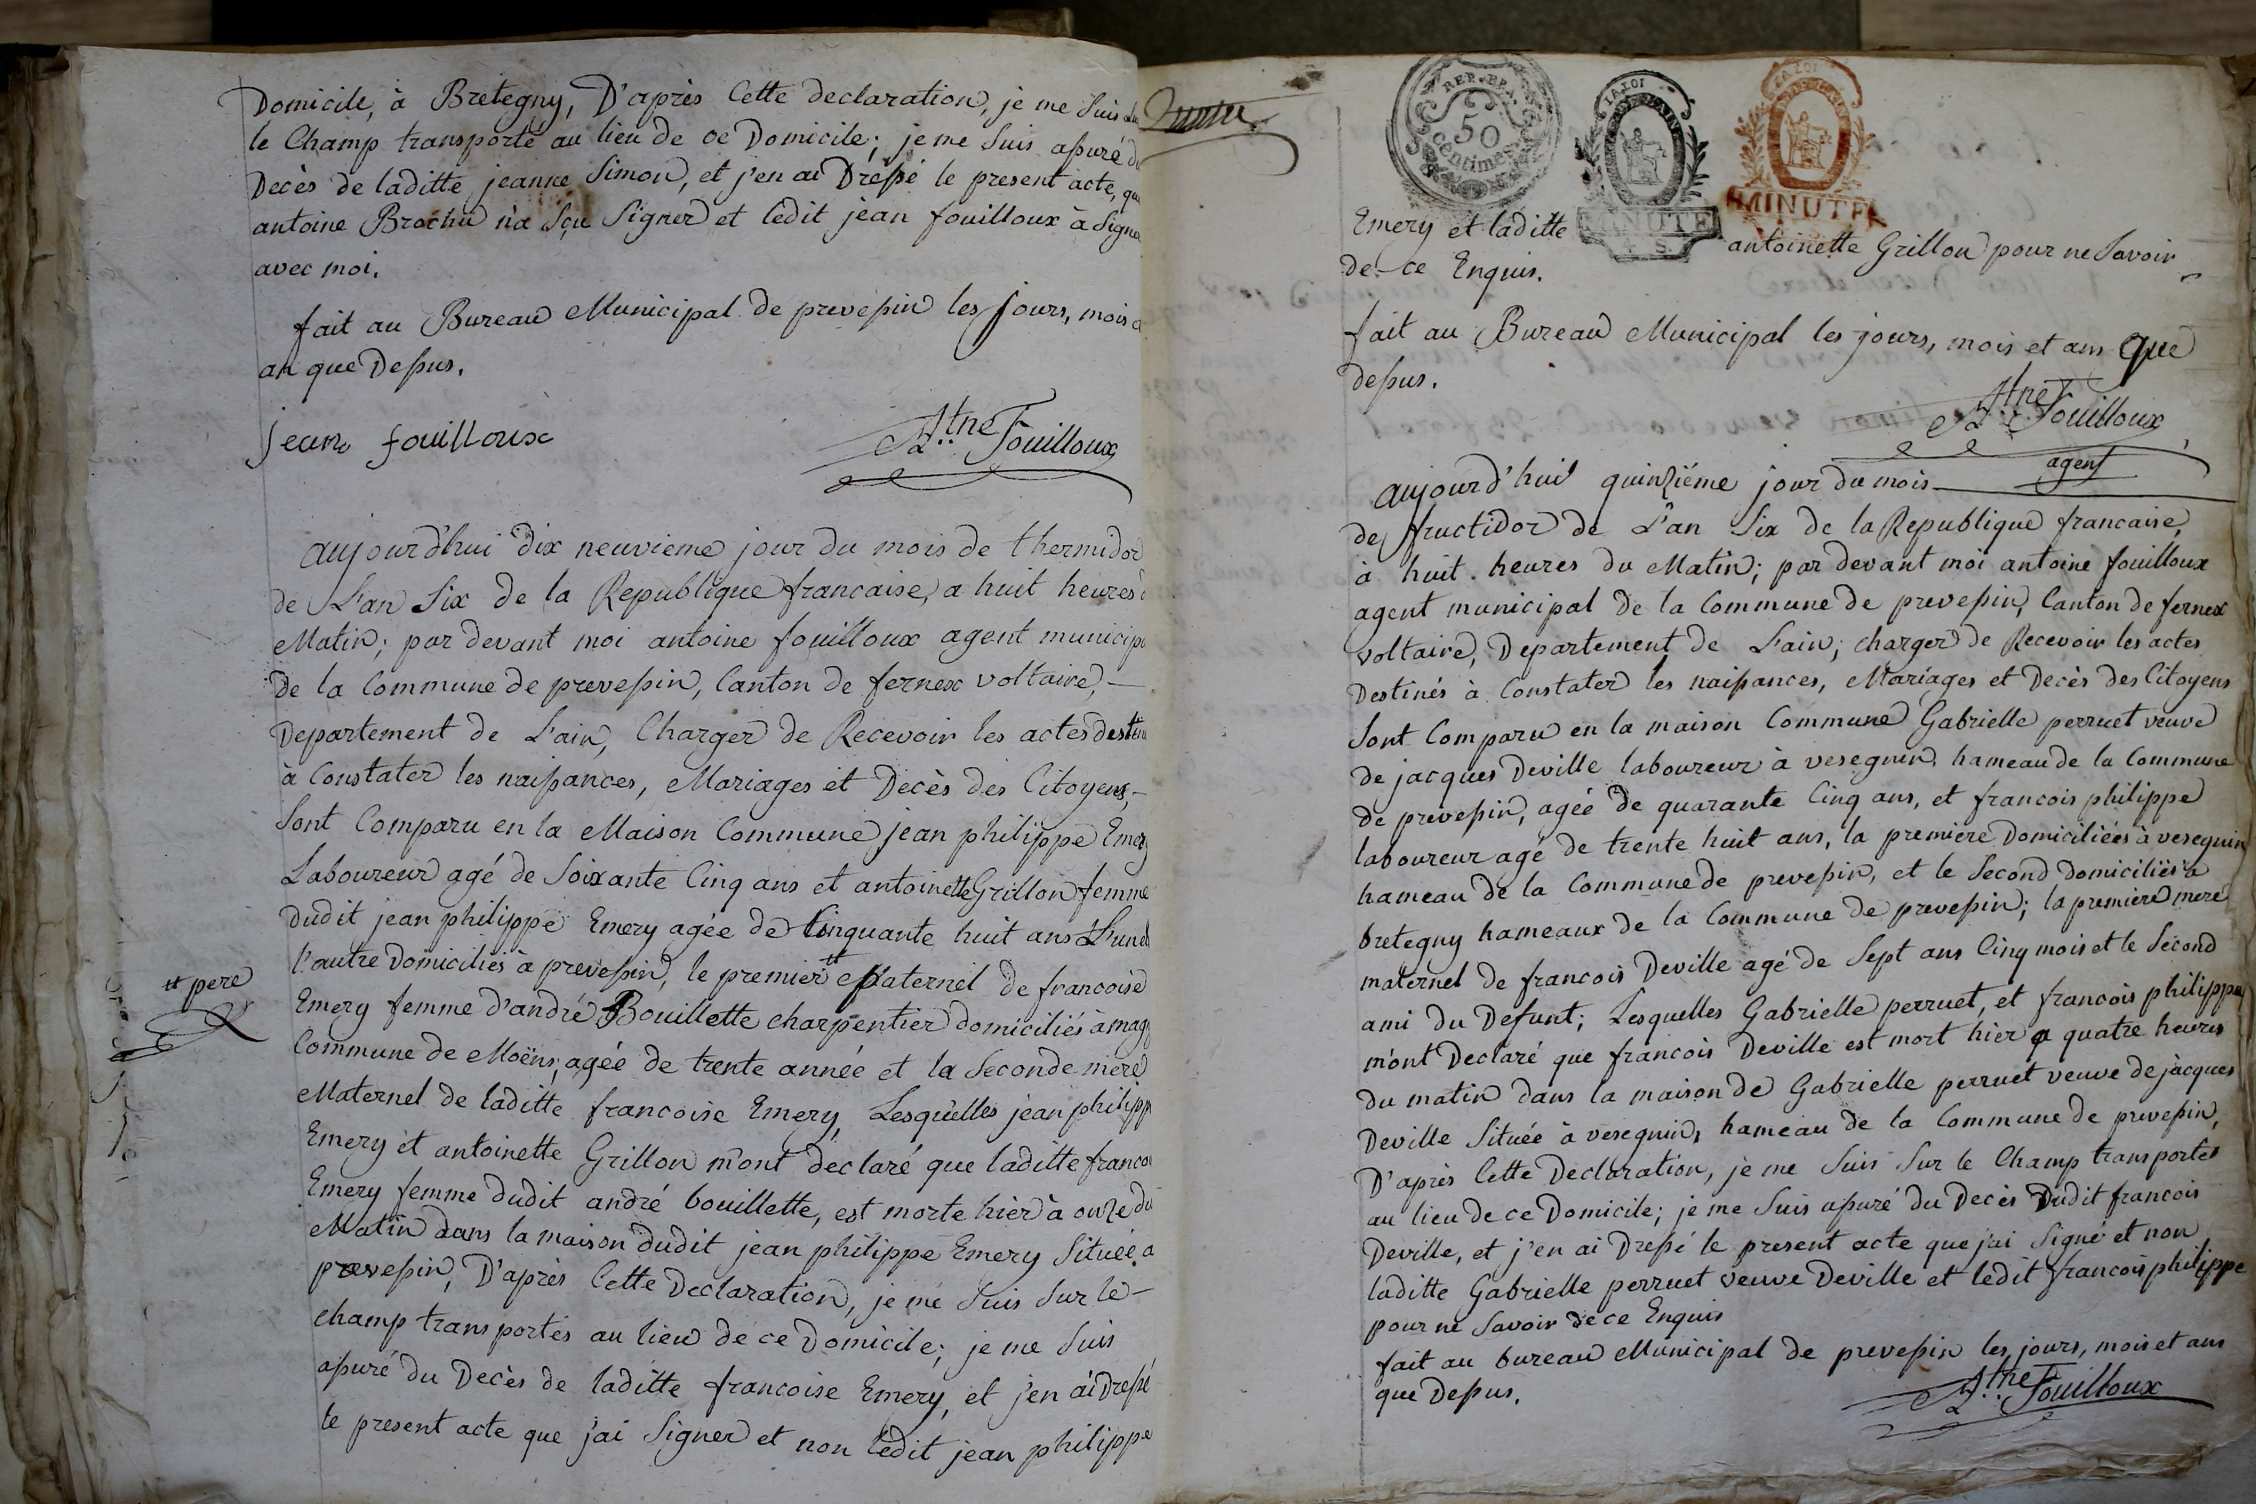 Domicile, à Bretegny, D'après Cette declaration, je me Suis
le Champ transporté au lieu de ce Domicile; je me Suis apuré du
Decès de laditte jeanne Simon, et j'en ai Drepé le present acte, que
antoine Brochu n'a Sçu Signer et ledit jean fouilloux à Signe
avec moi.
fait au Bureau Municipal de prevepin les jours, mois
an que Depus.
jean fouilloux
Atne Fouilloux
aujourd'hui dix neuvieme jour du mois de thermidor
de L'an Six de la Republique francaise, a huit heures
Matin; par devant moi antoine fouilloux agent municip
de la Commune de prevepin, Canton de fernex voltaire, —
Departement de L'ain, Charger de Recevoir les actes destin
à Constater les naipances, Mariages et Decès des Citoyens, —
Sont Comparu en la Maison Commune jean philippe Emery
Laboureur agé de Soixante Cinq ans et antoinette Grillon femme
dudit jean philippe Emery agée de Cinquante huit ans L'un et
l'autre Domiciliés à prevepin, le premier et paternel de francoise
et pere
Emery femme d'andré Bouillette charpentier domiciliés à magn
Commune de Moëns, agée de trente année et la Seconde mere
Maternel de laditte francoise Emery, Lesquelles jean philipp
Emery et antoinette Grillon m'ont déclaré que laditte franco
Emery femme dudit andré bouillette, est morte hier à onze du
Matin dans la maison dudit jean philippe Emery Située a
prevepin, D'après Cette Declaration, je me Suis Sur le —
champ transportés au lieu de ce Domicile; je me Suis
apuré du Decès de laditte francoise Emery, et j'en ai Drepé
le present acte que j'ai Signer et non ledit jean philippe
REP. FRA.
50
centimes
LA LOI
MINUTE
LA LOI
MINUTE
Emery et laditte antoinette Grillon pour ne Savoir
de ce Enquis.
fait au Bureau Municipal les jours, mois et ans que
depus.
Atne Fouilloux
agent
aujourd'hui quinziéme jour du mois
de fructidor de L'an Six de la Republique francaise,
à huit heures du Matin; par devant moi antoine fouilloux
agent municipal de la Commune de prevepin, Canton de fernex
voltaire, Departement de L'ain; charger de Recevoir les actes
Destinés à Constater les naipances, Mariages et Decès des Citoyens
Sont Comparu en la maison Commune Gabrielle perruet veuve
de jacques Deville laboureur à vesegnin hameau de la Commune
de prevepin, agée de quarante Cinq ans, et francois philippe
laboureur agé de trente huit ans, la premiere Domiciliées à vesegnin
hameau de la Commune de prevepin, et le Second Domiciliés à
bretegny hameaux de la Commune de prevepin; la premiere mere
maternel de francois Deville agé de Sept ans Cinq mois et le Second
ami du Defunt; Lesquelles Gabrielle perruet, et francois philippe
m'ont Declaré que francois Deville est mort hier a quatre heures
du matin dans la maison de Gabrielle perruet veuve de jacques
Deville Située à vesegnin, hameau de la Commune de prevepin,
D'après Cette Declaration, je me Suis Sur le Champ transportés
au lieu de ce Domicile; je me Suis apuré du Decès Dudit francois
Deville, et j'en ai Drepé le present acte que j'ai Signé et non
laditte Gabrielle perruet veuve Deville et ledit francois philippe
pour ne Savoir de ce Enquis
fait au bureau Municipal de prevepin les jours, mois et ans
que Depus.
Atne Fouilloux